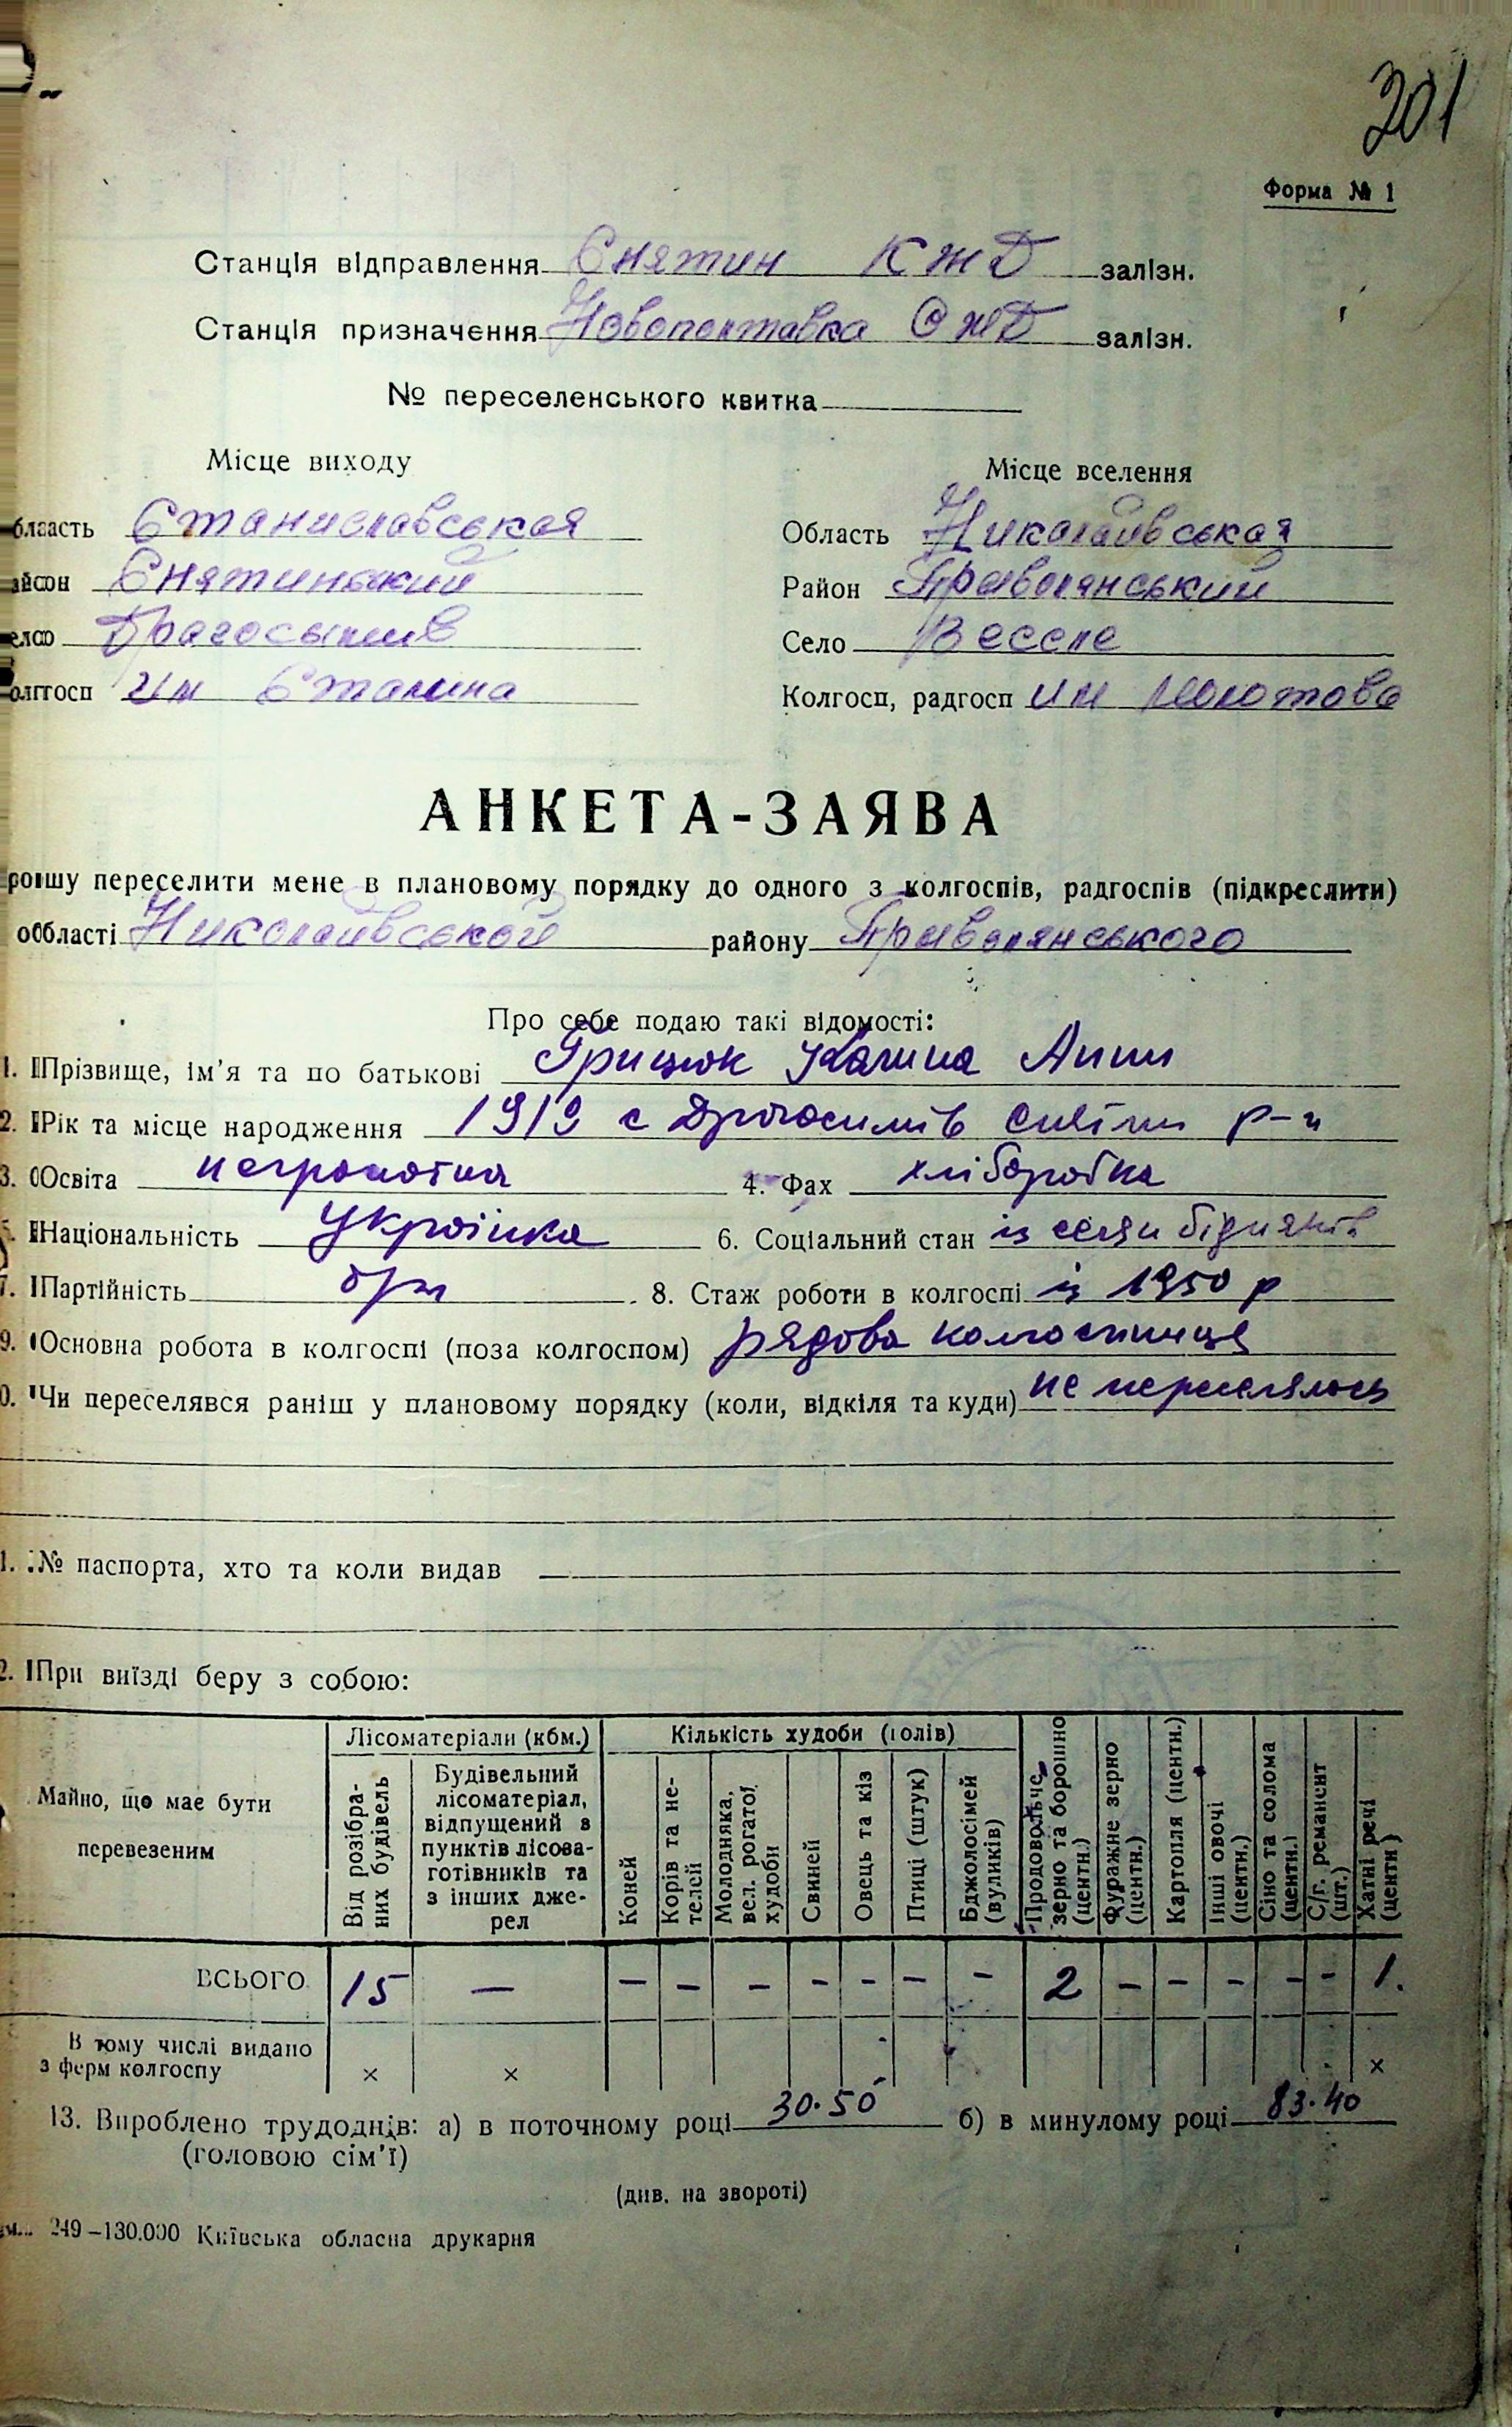 201
Форма № 1
Станція відправлення Снятин КЖД залізн.
Станція призначення Новополтавка ОЖД залізн.
№ переселенського квитка
Місце виходу
Місце вселення
бласасть Станиславськая
Область Николаївськая
айсон Снятинський
Район Привольянський
елсо Драгосымів
Село Веселе
олггосп им Сталина
Колгосп, радгосп им Молотова
АНКЕТА-ЗАЯВА
рошу переселити мене в плановому порядку до одного з колгоспів, радгоспів (підкреслити)
області Николаївськой району Привольянського
Про себе подаю такі відомості:
1. Прізвище, ім'я та по батькові Грицюк Калина Анни
2. Рік та місце народження 1919 с Драгосимів Снятин р-н
3. Освіта неграмотна 4. Фах хліборобка
5. Національність Українка 6. Соціальний стан із селян бідняків
7. Партійність б/п 8. Стаж роботи в колгоспі із 1950 р
9. Основна робота в колгоспі (поза колгоспом) рядова колгоспниця
0. Чи переселявся раніш у плановому порядку (коли, відкіля та куди) не переселялась
1. № паспорта, хто та коли видав
2. При виїзді беру з собою:
Майно, що має бути перевезеним
Лісоматеріали (кбм.)
Кількість худоби (голів)
Від розібра-
них будівель
Будівельний
лісоматеріал,
відпущений з
пунктів лісоза-
готівників та
з інших дже-
рел
Коней
Корів та не-
телей
Молодняка,
вел. рогатої
худоби
Свиней
Овець та кіз
Птиці (штук)
Бджолосімей
(вуликів)
Продовольче
зерно та борошно
(центн.)
Фуражне зерно
(центн.)
Картопля (центн.)
Інші овочі
(центн.)
Сіно та солома
(центн.)
С/г. реманент
(шт.)
Хатні речі
(центн)
ВСЬОГО 15 — — — — — — — — 2 — — — — — 1.
В тому числі видано
з ферм колгоспу × × ×
13. Вироблено трудоднів: а) в поточному році 30.50 б) в минулому році 83.40
(головою сім'ї)
(див. на звороті)
249–130.000 Київська обласна друкарня